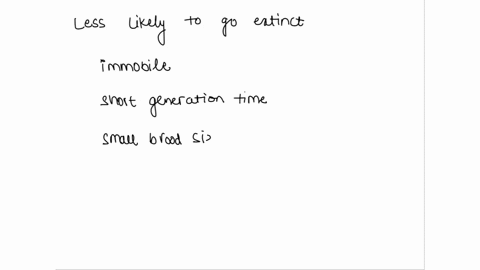 Less likely to go extinct
immobile
short generation time
small brood si